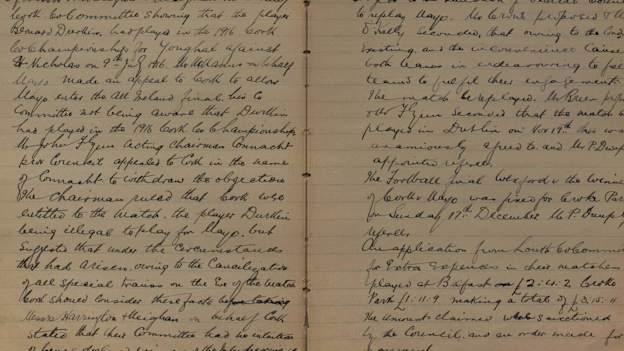 Co Committee showing that the player
Bernard Durkin, had played in the 1916 Cork
Co Championship for Youghal against
St Nicholas on 9th July 1916. on behalf
Mayo made an appeal to Cork to allow
Mayo enter the All Ireland final, his Co
Committee not being aware that Durkin
had played in the 1916 Cork Co Championships
Mr John Flynn acting Chairman Connacht
Prov Council appealed to Cork in the name
of Connacht to withdraw the objection
The Chairman ruled that Cork was
entitled to the match, the player Durkin
being illegal to play for Mayo, but
suggests that under the Circumstances
that had arisen, owing to the Cancellation
of all Special trains on the Eve of the match
Cork should consider these facts
Messrs Harrington & Meighan on behalf Cork
stated that their Committee had no intention
to replay Mayo. Mr Crowe proposed & Mr
O'Reilly seconded, that owing to the
Existing, and the inconvenience Cause
both teams in endeavouring to
teams to fulfil their engagement
The match be replayed. Mr Breen
& Mr Flynn seconded that the match be
played in Dublin on Nov 19th this was
unanimously agreed to and Mr P Dunp
appointed referee.
The Football final Wexford v the winner
of Cork v Mayo was fixed for Croke Par
on Sunday 17th December Mr P. Dunp
referee
An application from Louth Co Comm
for Extra Expenses in their matches
played at Belfast £2:4:2 Croke
Park £1:11:9 making a total of £3:15:11
The amount claimed was sanctioned
by the Council, and an order made for